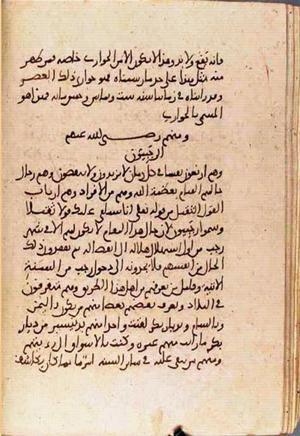 فانه يقع ولا بد وهذا لا يكون الا من الحوارى خاصة فمن ظهر
منه مثل هذا على حد ما رسمناه فهو حوارى ذلك العصر
وقد رايناه فى زماننا سنة ست وثمانين وخمس مايه فهذا هو
المسمى بالحوارى
ومنهم رضى الله عنهم
الرجبيون
وهم اربعون نفسا فى كل زمان لا يزيدون ولا ينقصون وهم رجال
حالهم القيام بعظمة الله وهم من الافراد وهم ارباب
القول الثقيل من قوله تعلى انا سنلقى عليك قولا ثقيلا
وسموا رجبيون لان حال هذا المقام لا يكون لهم الا فى شهر
رجب من اول استهلال هلاله الى انفصاله ثم يفقدون ذلك
الحال من انفسهم فلا يجدونه الى دخول رجب من السنة
الاتية وقليل من يعرفهم من اهل هذا الطريق وهم متفرقون
فى البلاد ويعرف بعضهم بعضا منهم من يكون باليمن
وبالشام وبديار بكر لقيت واحدا منهم بدنيسير من ديار
بكر ما رايت منهم غيره وكنت بالاشواق الى رويتهم
ومنهم من يبقى عليه فى سائر السنة امر ما مما كان يكاشف